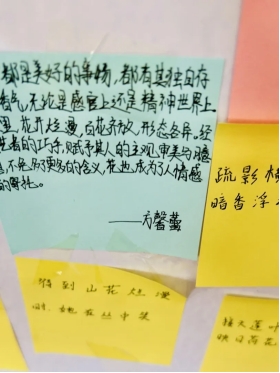 都是美好的事物，都有其独自存
香气，无论是感官上还是精神世界上
里，花开烂漫，百花齐放，形态各异，经
者的巧手，赋予其人的主观审美与
更多的含义，花也成为了人情感
的寄托。
——方馨萤
疏影横
暗香浮
待到山花烂漫
时，她在丛中笑
接天莲叶
映日荷花